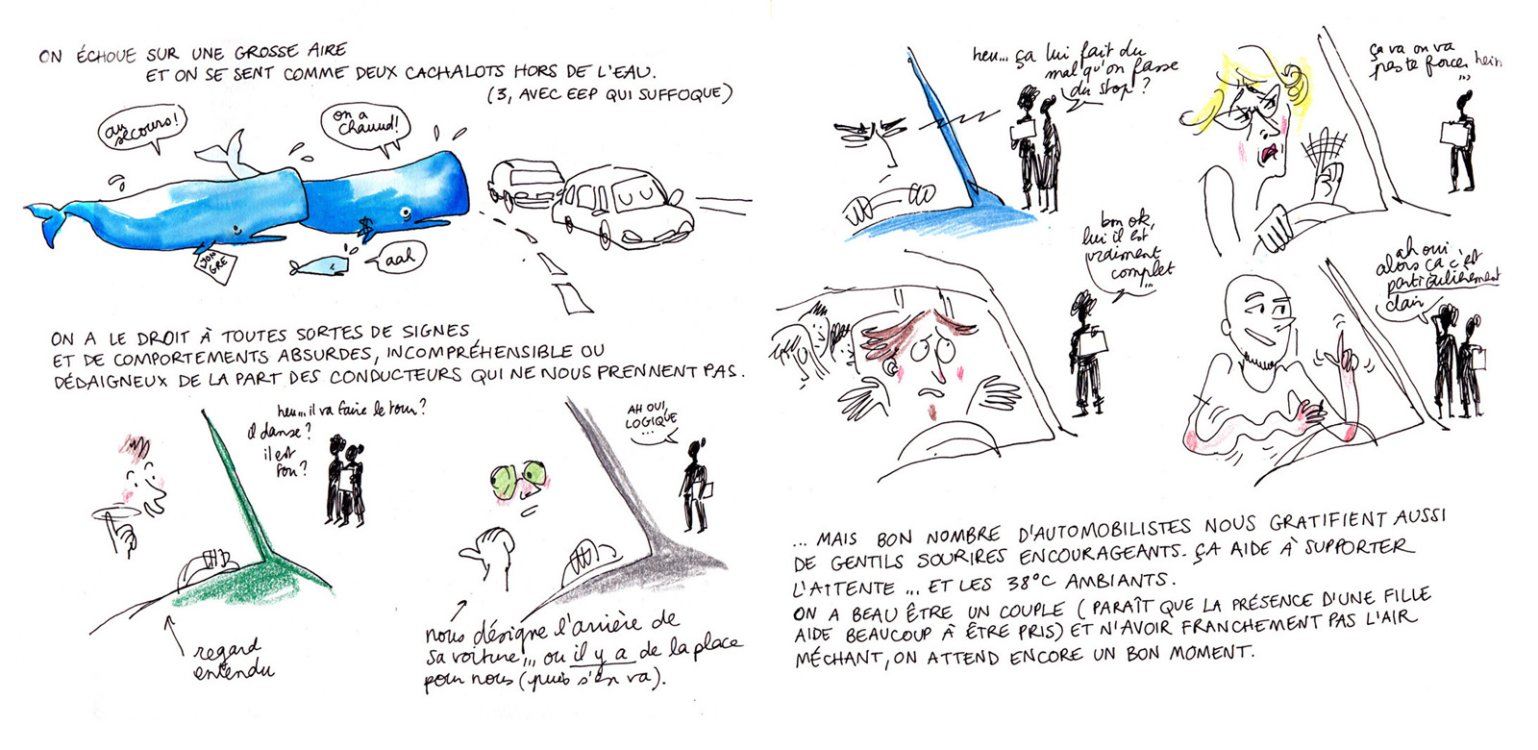 ON ÉCHOUE SUR UNE GROSSE AIRE
ET ON SE SENT COMME DEUX CACHALOTS HORS DE L'EAU.
(3, AVEC EEP QUI SUFFOQUE)
au
secours!
on a
chauud!
JON
GRE
aah
ON A LE DROIT À TOUTES SORTES DE SIGNES
ET DE COMPORTEMENTS ABSURDES, INCOMPRÉHENSIBLE OU
DÉDAIGNEUX DE LA PART DES CONDUCTEURS QUI NE NOUS PRENNENT PAS.
heu... il va faire le tour?
il danse?
il est
fou?
regard
entendu
AH OUI,
LOGIQUE
...
nous désigne l'arrière de
sa voiture... où il y a de la place
pour nous (puis s'en va).
heu... ça lui fait du
mal qu'on fasse
du stop?
ça va on va
pas te forcer hein
...
bon ok,
lui il est
vraiment
complet
...
ah oui
alors ça c'est
particulièrement
clair
... MAIS BON NOMBRE D'AUTOMOBILISTES NOUS GRATIFIENT AUSSI
DE GENTILS SOURIRES ENCOURAGEANTS. ÇA AIDE À SUPPORTER
L'ATTENTE ... ET LES 38°C AMBIANTS.
ON A BEAU ÊTRE UN COUPLE (PARAÎT QUE LA PRÉSENCE D'UNE FILLE
AIDE BEAUCOUP À ÊTRE PRIS) ET N'AVOIR FRANCHEMENT PAS L'AIR
MÉCHANT, ON ATTEND ENCORE UN BON MOMENT.